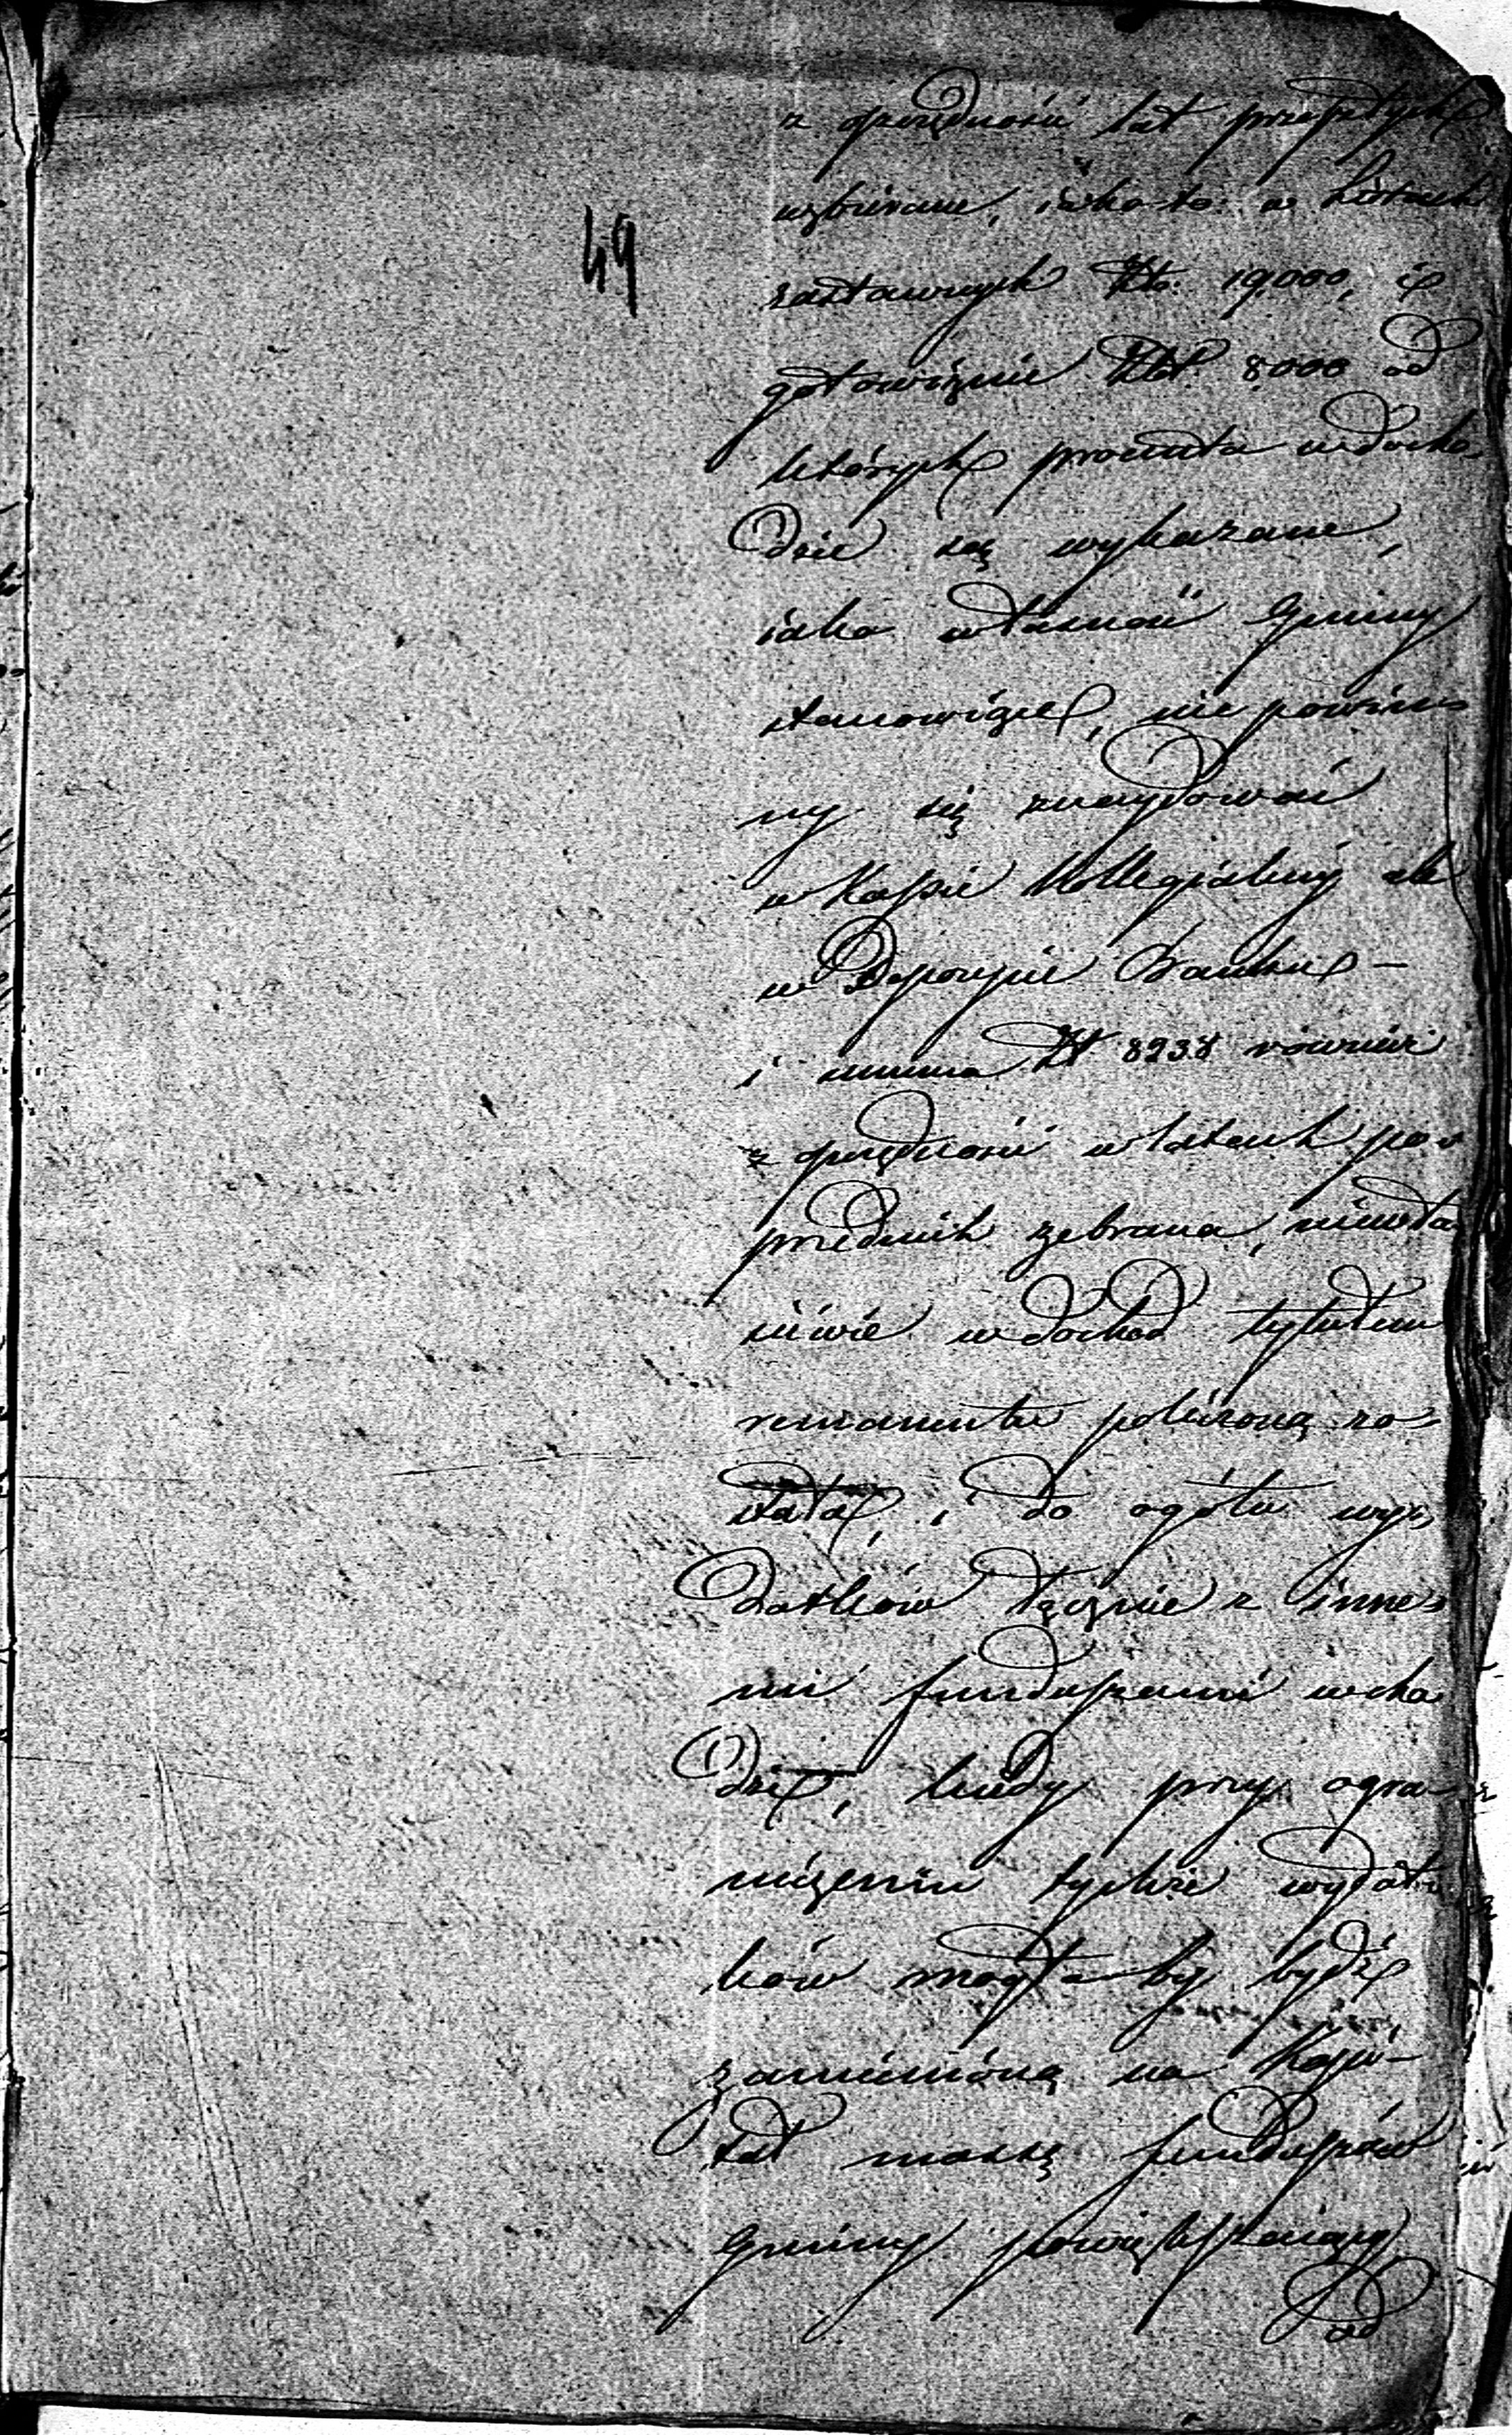 49
z oszczędności lat przeszłych
uzbierane, iako to: w Listach
zastawnych Złt. 19,000, i
gotowiznie Złot. 8000 od
których procenta w docho-
dzie są wykazane,
iako własność Gminy
stanowiące, nie powin-
ny się znaydować
w Kassie Kollegialny ale
w Depozycie Banku –
i summa Zł 8238 również
z oszczędności w latach po-
przednich zebrana, niewła-
ściwie w dochod tytułem
remanentu policzoną zo-
stała, i do ogółu wy-
datków łącznie z inne-
mi funduszami wcho-
dzi, kiedy przy ogra-
niczeniu tychże wydat-
ków mogła by bydź
zamienioną na Kapi-
tał massę funduszów
Gminy powiększaiący
od